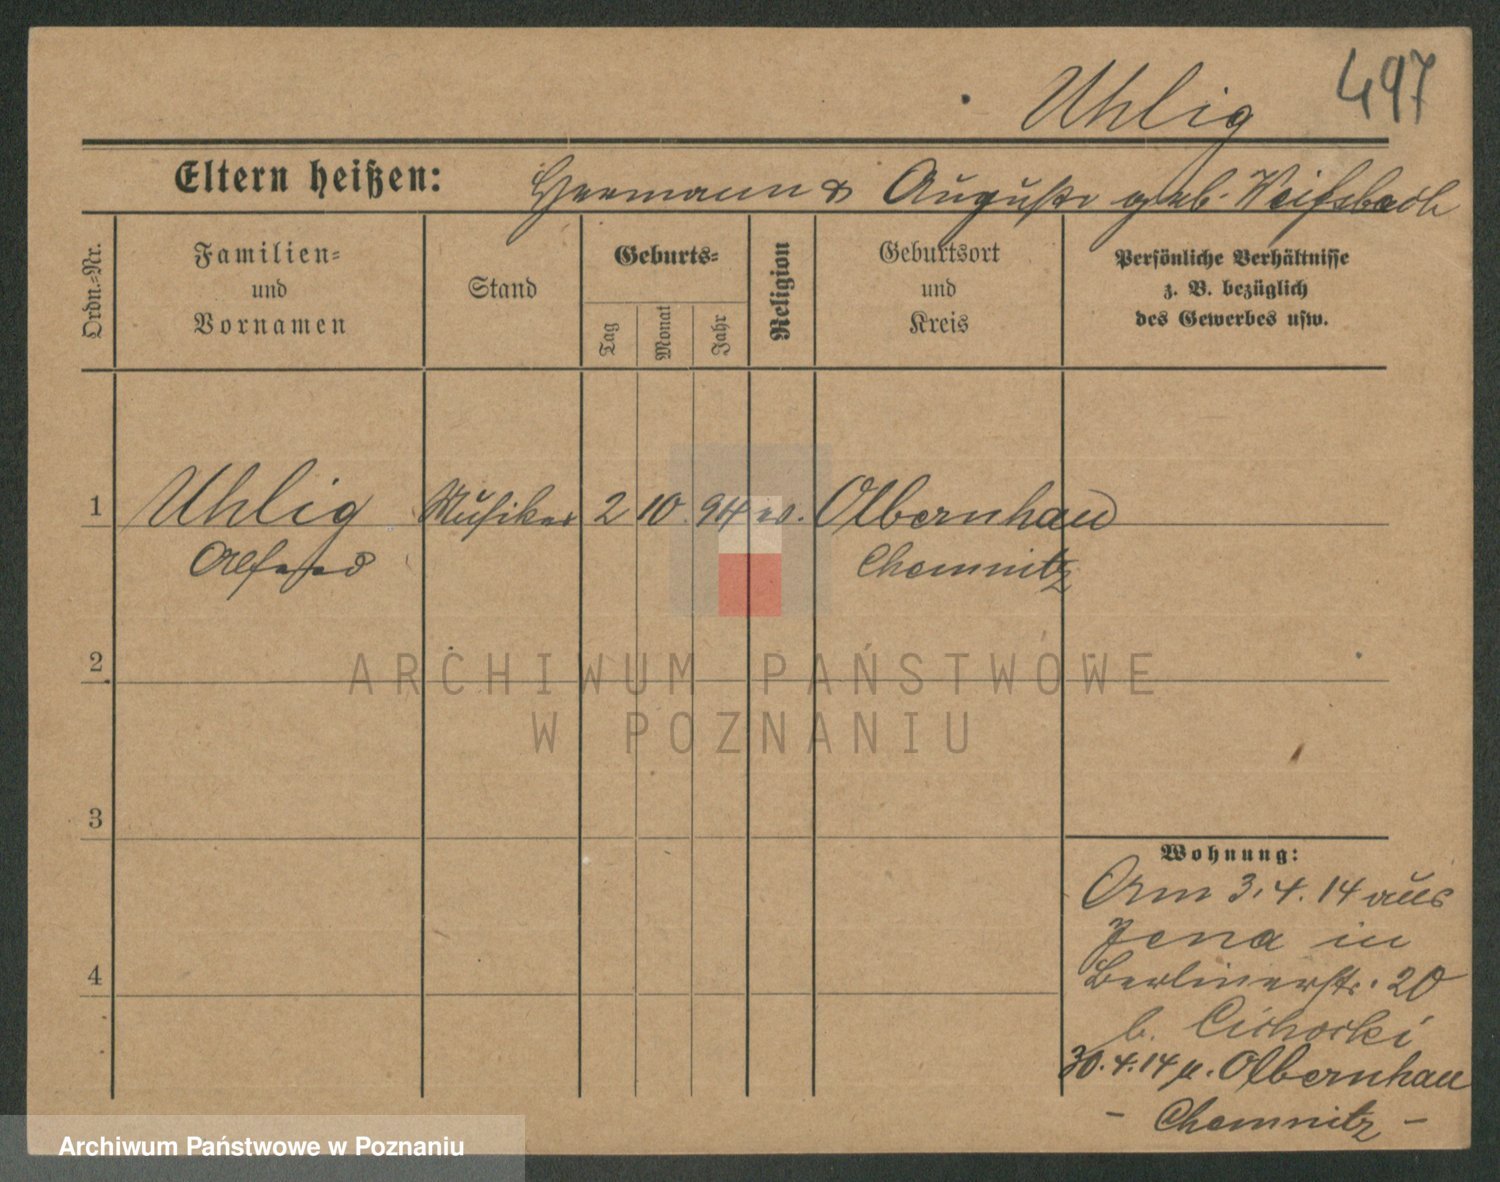 Uhlig 497
Eltern heißen: Hermann & Auguste geb. Weißbach
Ordn.-Nr.
Familien-
und
Vornamen
Stand
Geburts-
Tag
Monat
Jahr
Religion
Geburtsort
und
Kreis
Persönliche Verhältnisse
z. B. bezüglich
des Gewerbes usw.
1 Uhlig Musiker 2 10. 94 ev. Olbernhau
Alfred Chemnitz
2
ARCHIWUM PAŃSTWOWE
W POZNANIU
3
4
Wohnung:
Am 3.4.14 aus
Jena in
Berlinerstr. 20
b. Cichocki
30.4.14 n. Olbernhau
- Chemnitz -
Archiwum Państwowe w Poznaniu